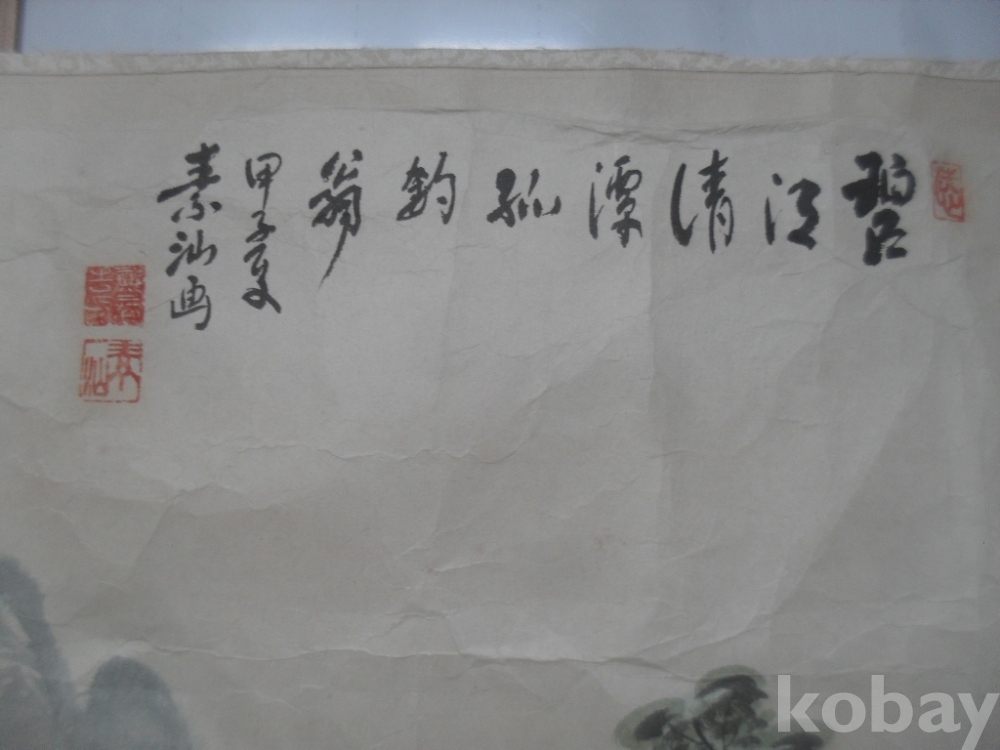 碧江清潭孤釣翁
甲子夏
素汕画
kobay